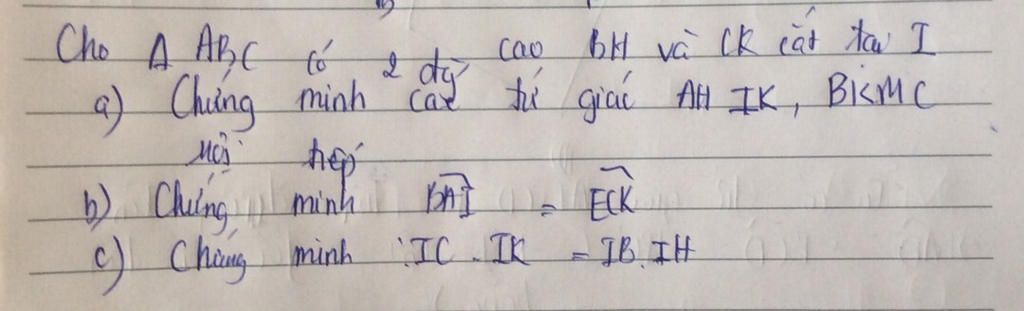 Cho Δ ABC có 2 đg cao BH và CK cắt tại I
a) Chứng minh các tứ giác AHIK, BKMC
nội tiếp
b) Chứng minh BAI = ECK
c) Chứng minh : IC . IK = IB . IH